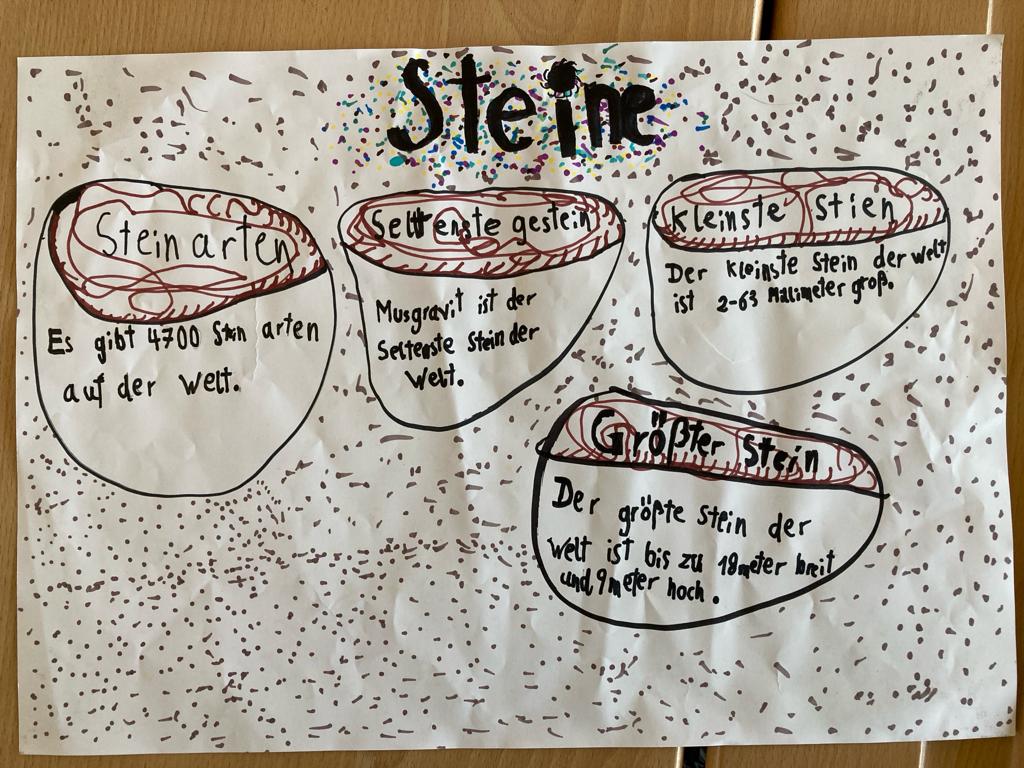 Steine
Stein arten
Es gibt 4700 Stein arten
auf der Welt.
Seltenste gestein
Musgravit ist der
Seltenste Stein der
Welt.
kleinste Stien
Der kleinste Stein der Welt
ist 2-63 Millimeter groß.
Größter Stein
Der größte Stein der
Welt ist bis zu 18meter breit
und 9meter hoch.